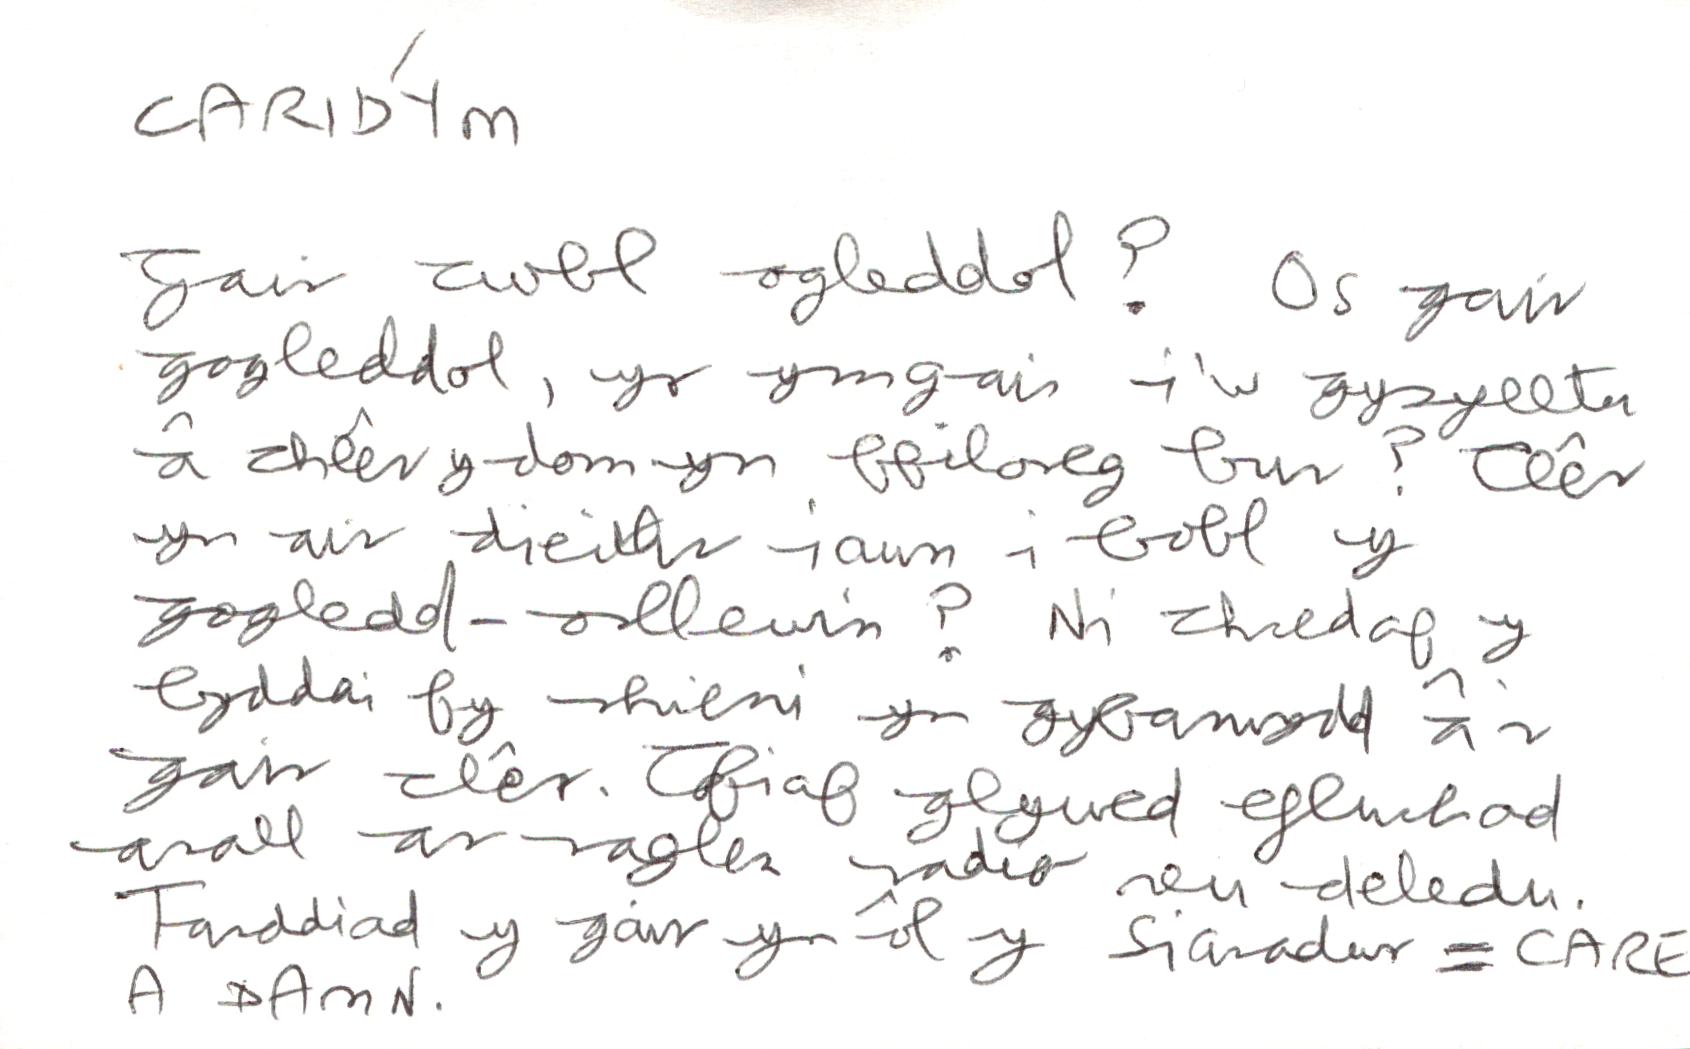 CARIDÝM
Gair cwbl ogleddol? Os gair
gogleddol, yr ymgais i'w gysylltu
â chlêr y dom yn ffiloreg bur? Clêr
yn air dieithr iawn i bobl y
gogledd-orllewin? Ni chredaf y
byddai fy rhieni yn gybanwydd â'r
gair clêr. Cofiaf glywed eglurhad
arall ar raglen radio neu deledu.
Tarddiad y gair yn ôl y siaradwr = CARE
A DAMN.